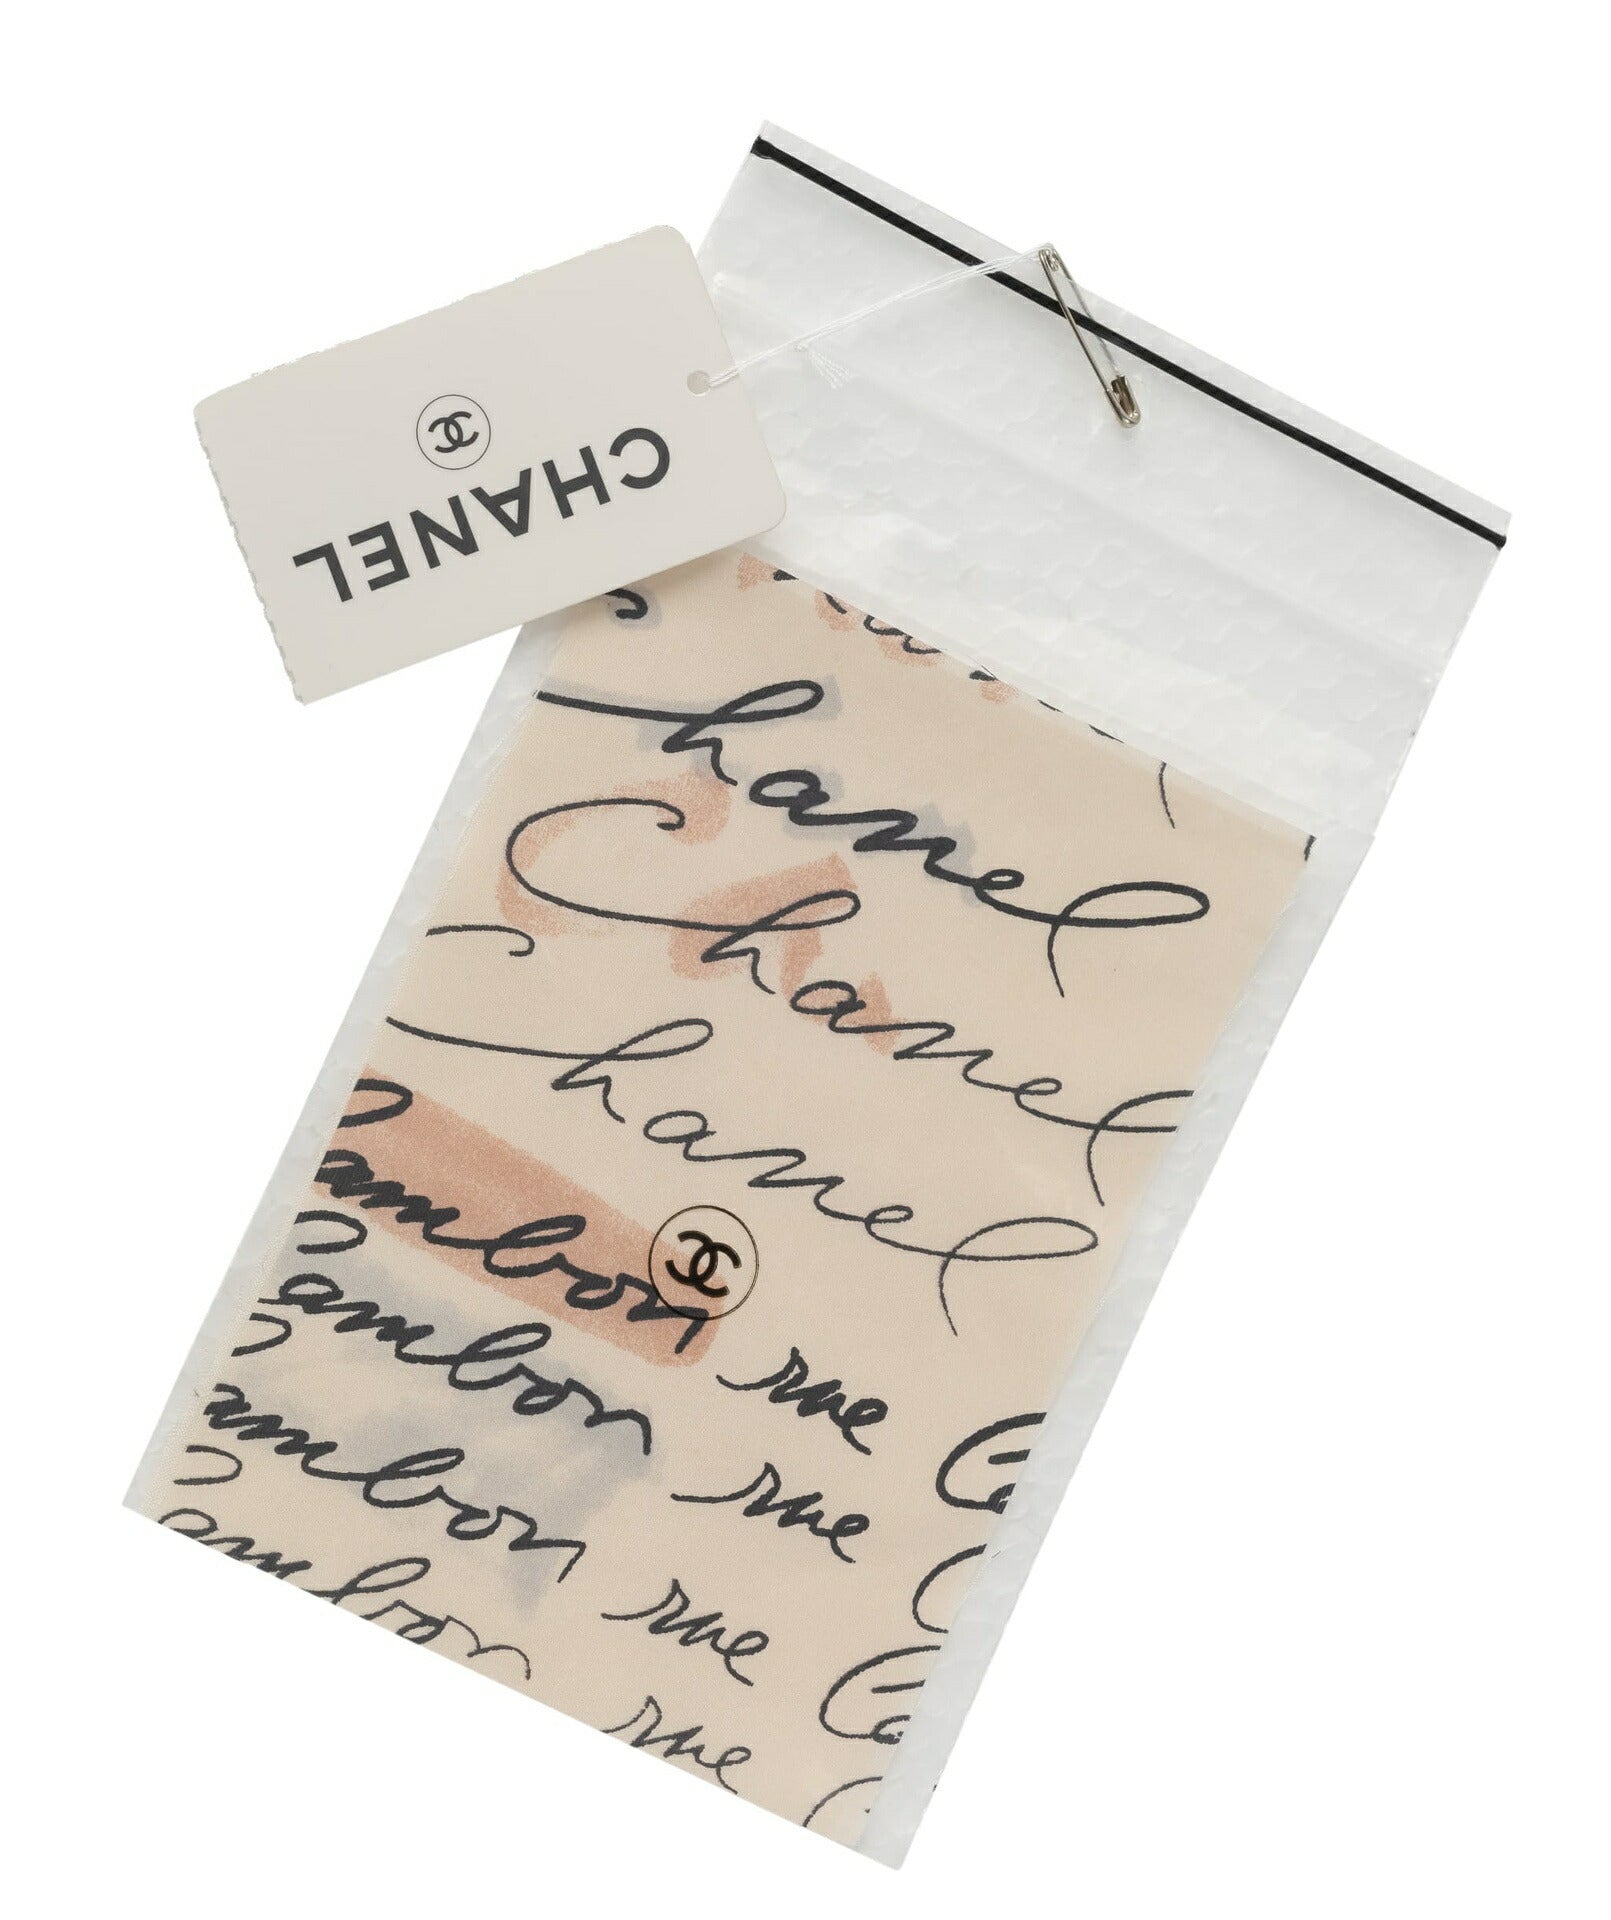 CHANEL
hanel
Chanel
hanel
ambon rue Ca
ambon rue Ca
ambon rue Ca
ambon rue